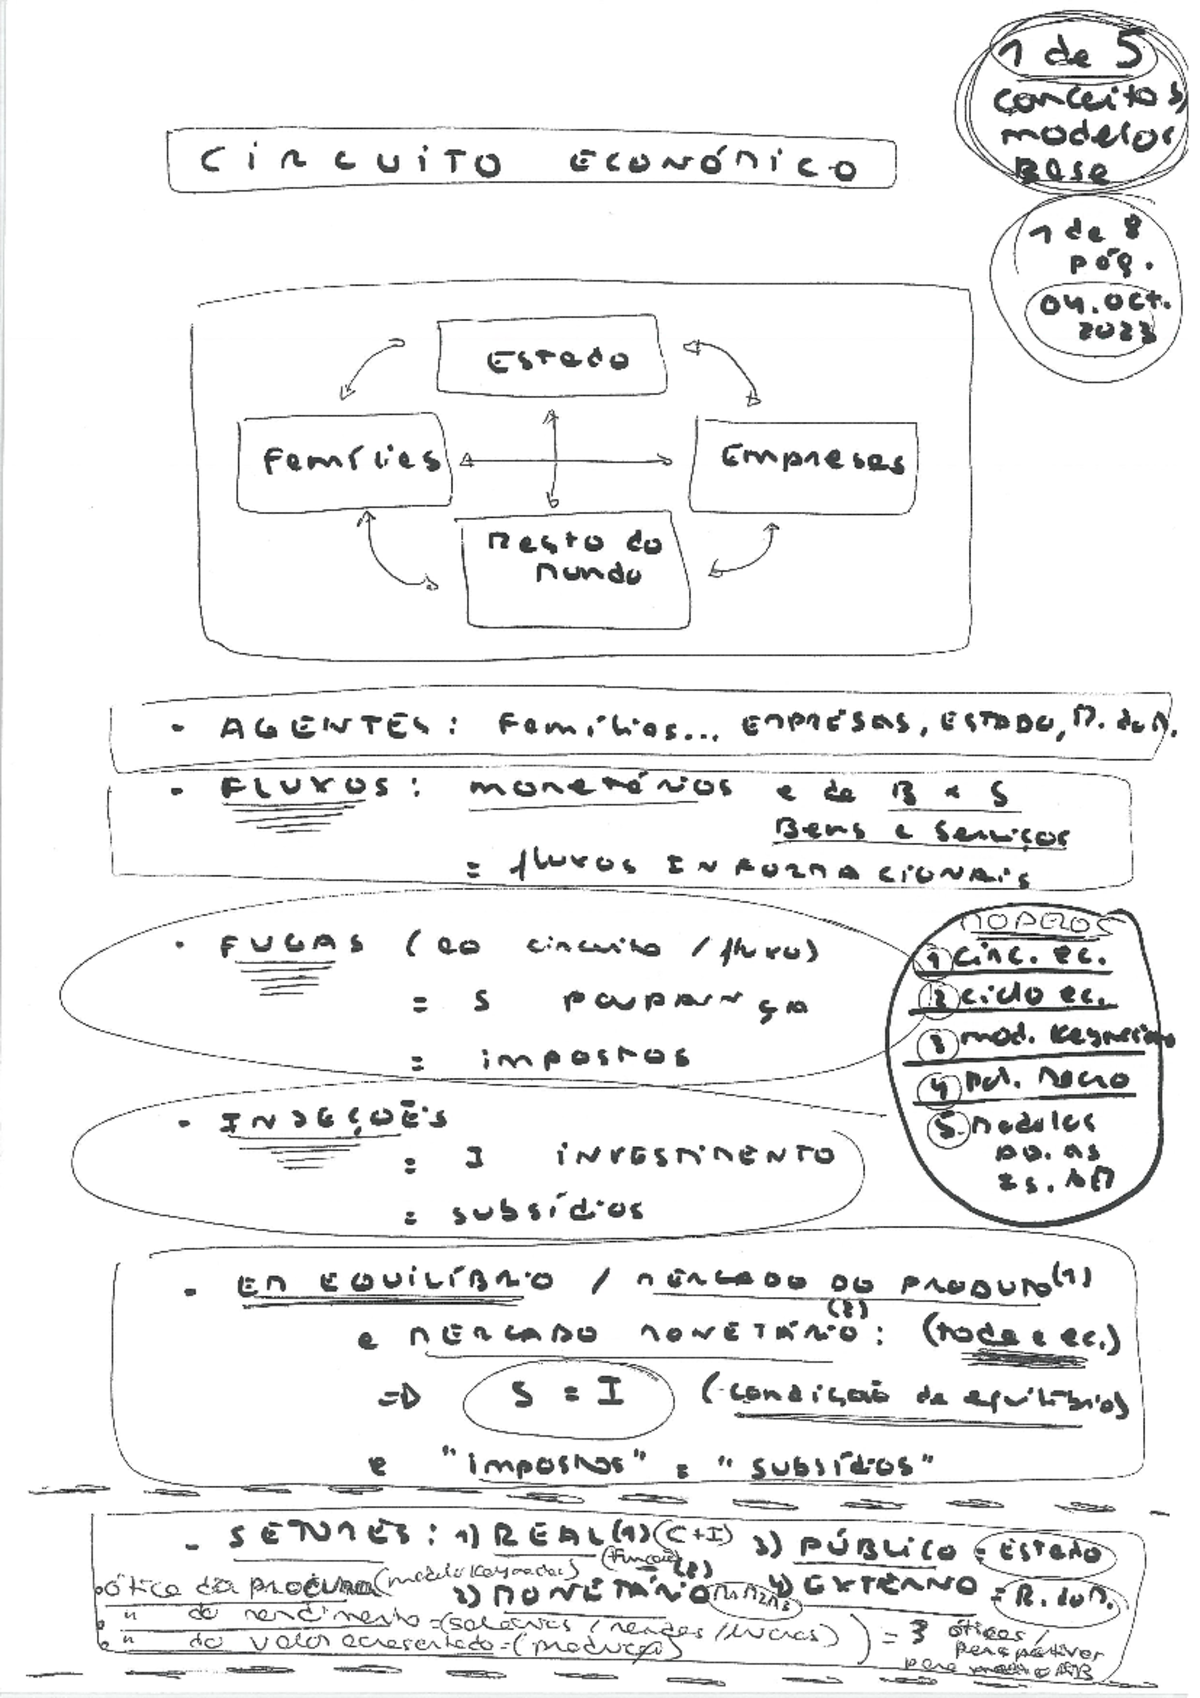 1 de 5
conceitos,
modelos
BASE
CIRCUITO ECONÓMICO
1 de 8
pág.
04.OCT.
2023
Estado
Famílias
Empresas
Resto do
Mundo
• AGENTES: Famílias... EMPRÉSAS, ESTADO, R. do M.
• FLUXOS: monetários e de B e S
Bens e Serviços
= fluxos INFORMACIONAIS
• FUGAS (ao circuito / fluxo)
= S POUPANÇA
= impostos
MODELOS
1 circ. ec.
2 ciclo ec.
3 mod. Keynesiano
4 Pol. Macro
5. modelos
DD. AS
IS. LM
• INJEÇÕES
= I INVESTIMENTO
= subsídios
- EM EQUILÍBRIO / MERCADO DO PRODUTO (1)
e MERCADO MONETÁRIO (2): (toda e ec.)
=> S = I (condição de equilíbrio)
e "impostos" = "subsídios"
- SETORES: 1) REAL (1) (C+I) 3) PÚBLICO = ESTADO
ótica da procura (modelo Keynesiano) 2) MONETÁRIO (2) M1 M2 M3 4) EXTERNO = R. do M.
" do rendimento = (salários / rendas / lucros)
" do valor acrescentado = (produção) = 3 óticas /
perspetivas
para medir o PIB